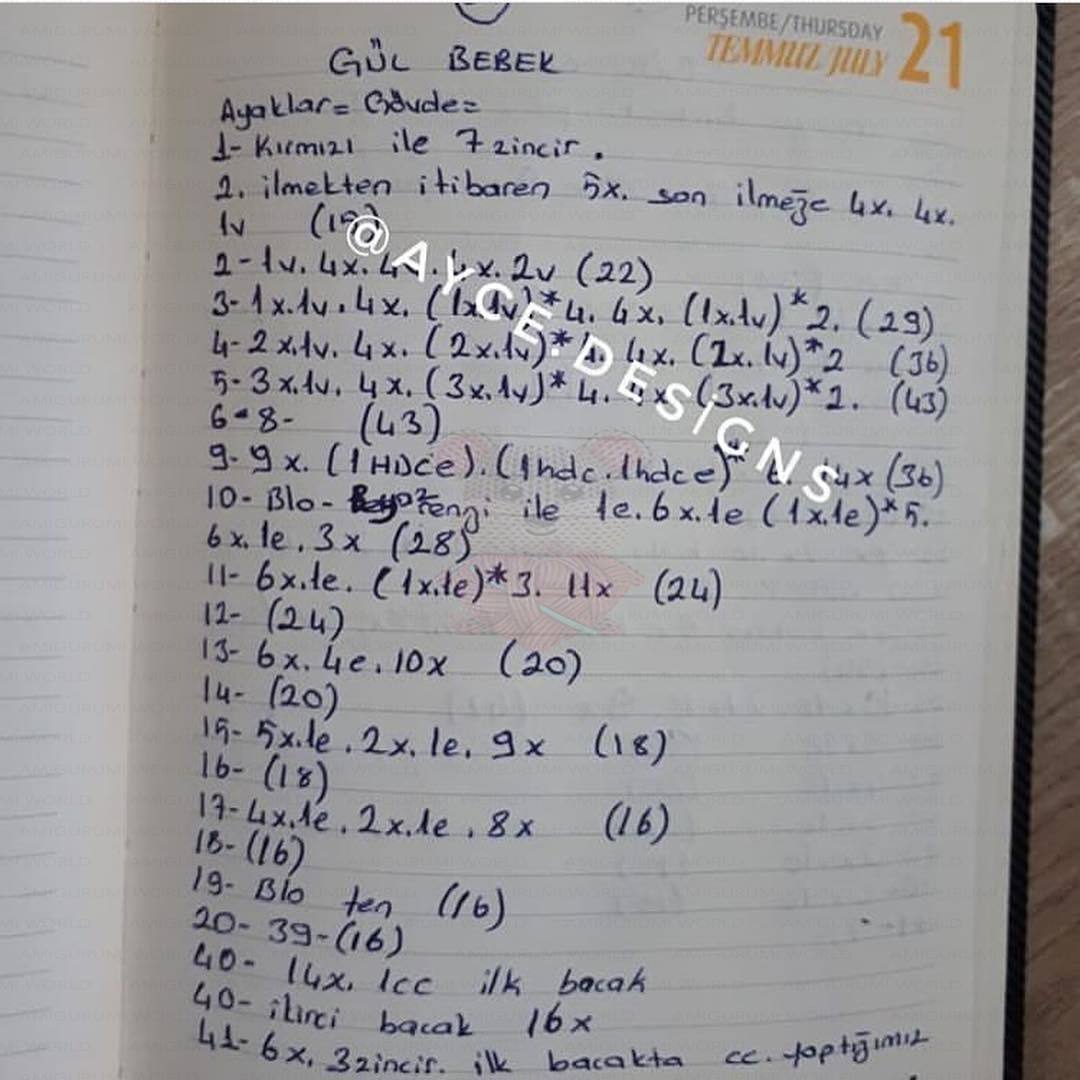 PERŞEMBE/THURSDAY
TEMMUZ JULY 21
GÜL BEBEK
Ayaklar= Gövde=
1- Kırmızı ile 7 zincir.
2. ilmekten itibaren 5x. son ilmeğe 4x. 4x.
1v (15)
2- 1v. 4x. 4v. 4x. 2v (22)
3- 1x.1v. 4x. (1x.1v)*4. 4x. (1x.1v)*2. (29)
4- 2x.1v. 4x. (2x.1v)*4. 4x. (2x.1v)*2 (36)
5- 3x.1v. 4x. (3x.1v)*4. 4x (3x.1v)*2. (43)
6-8- (43)
9- 9x. (1HDce). (1hdc.1hdce)* 14x (36)
10- Blo- rengi ile 1e. 6x.1e (1x.1e)*5.
6x.1e. 3x (28)
11- 6x.1e. (1x.1e)*3. 11x (24)
12- (24)
13- 6x. 4e. 10x (20)
14- (20)
15- 5x.1e. 2x. 1e. 9x (18)
16- (18)
17- 4x.1e. 2x.1e. 8x (16)
18- (16)
19- Blo ten (16)
20- 39-(16)
40- 14x. 1cc ilk bacak
40- ikinci bacak 16x
41- 6x. 3zincir. ilk bacakta cc. yaptığımız
@AYCE.DESIGNS